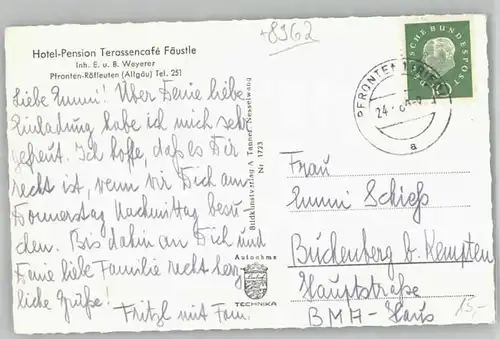 +8962
Hotel-Pension Terassencafé Fäustle
Inh. E. u. B. Weyerer
Pfronten-Röfleuten (Allgäu) Tel. 251
Liebe Emmi! Über Deine liebe
Einladung habe ich mich sehr
gefreut. Ich hoffe, daß es Dir
recht ist, wenn wir Dich am
Donnerstag Nachmittag besu-
chen. Bis dahin an Dich und
Deine liebe Familie recht herz-
liche Grüße!
Fritzl mit Fam.
Bildkunstverlag A. Tanner, Nesselwang
Nr. 1723
Autnahme
TECHNIKA
DEUTSCHE BUNDESPOST
PFRONTEN
24.
a
Frau
Emmi Schieß
Buchenberg b. Kempten
Hauptstraße
BMA-Haus
15,-